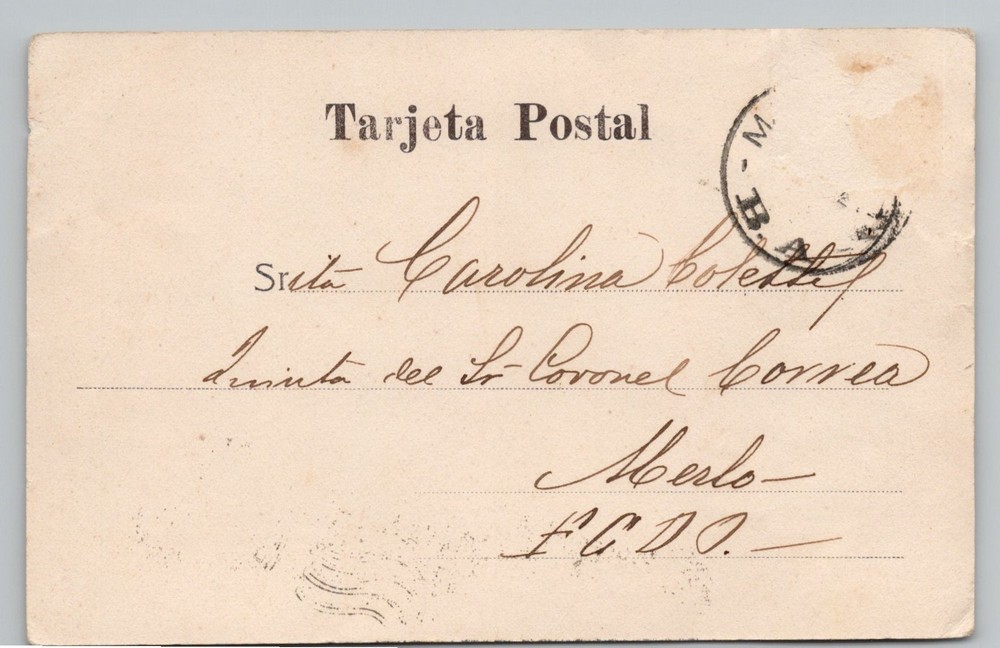 Tarjeta Postal
- M.
B. A
Srita Carolina Coletti
Quinta del Sr Coronel Correa
Merlo -
F C D O. -